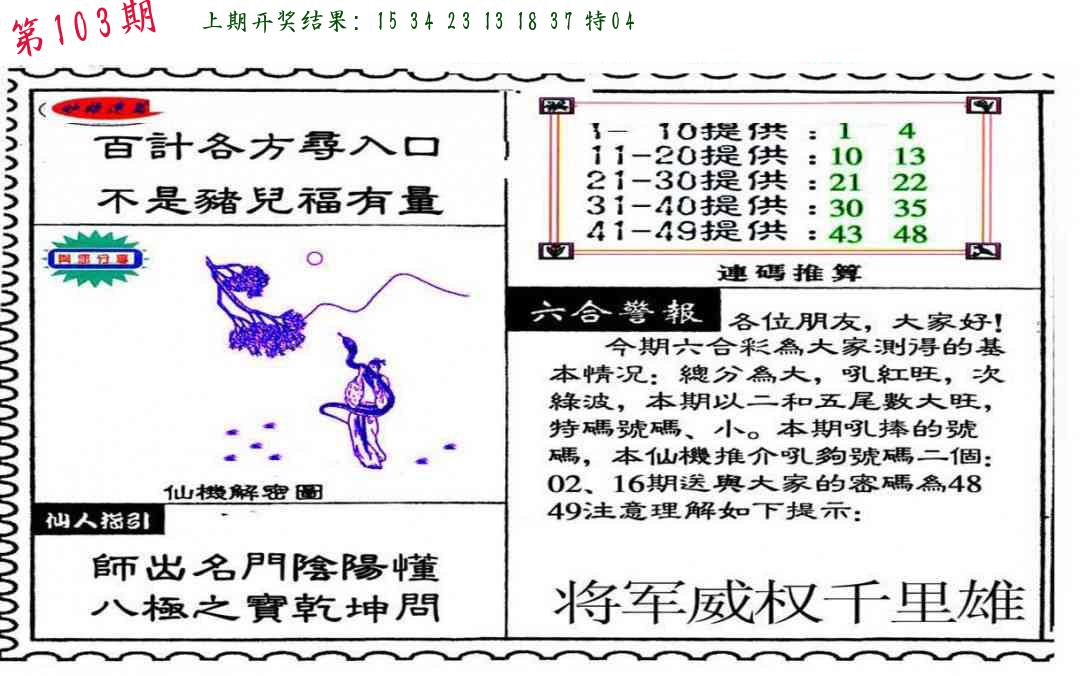 第103期
上期开奖结果：15 34 23 13 18 37 特04
百計各方尋入口
不是豬兒福有量
與您分享
仙機解密圖
仙人指引
師出名門陰陽懂
八極之寶乾坤問
1-10提供：1 4
11-20提供：10 13
21-30提供：21 22
31-40提供：30 35
41-49提供：43 48
連碼推算
六合警報
各位朋友，大家好!
今期六合彩為大家測得的基
本情況：總分為大，吼紅旺，次
綠波，本期以二和五尾數大旺，
特碼號碼、小。本期吼捧的號
碼，本仙機推介吼夠號碼二個：
02、16期送與大家的密碼為48
49注意理解如下提示：
将军威权千里雄